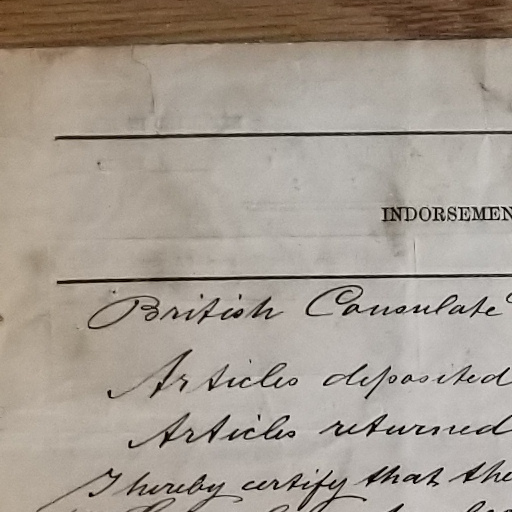 INDORSEMEN
British Consulate
Articles deposited
Articles returned
I hereby certify that the